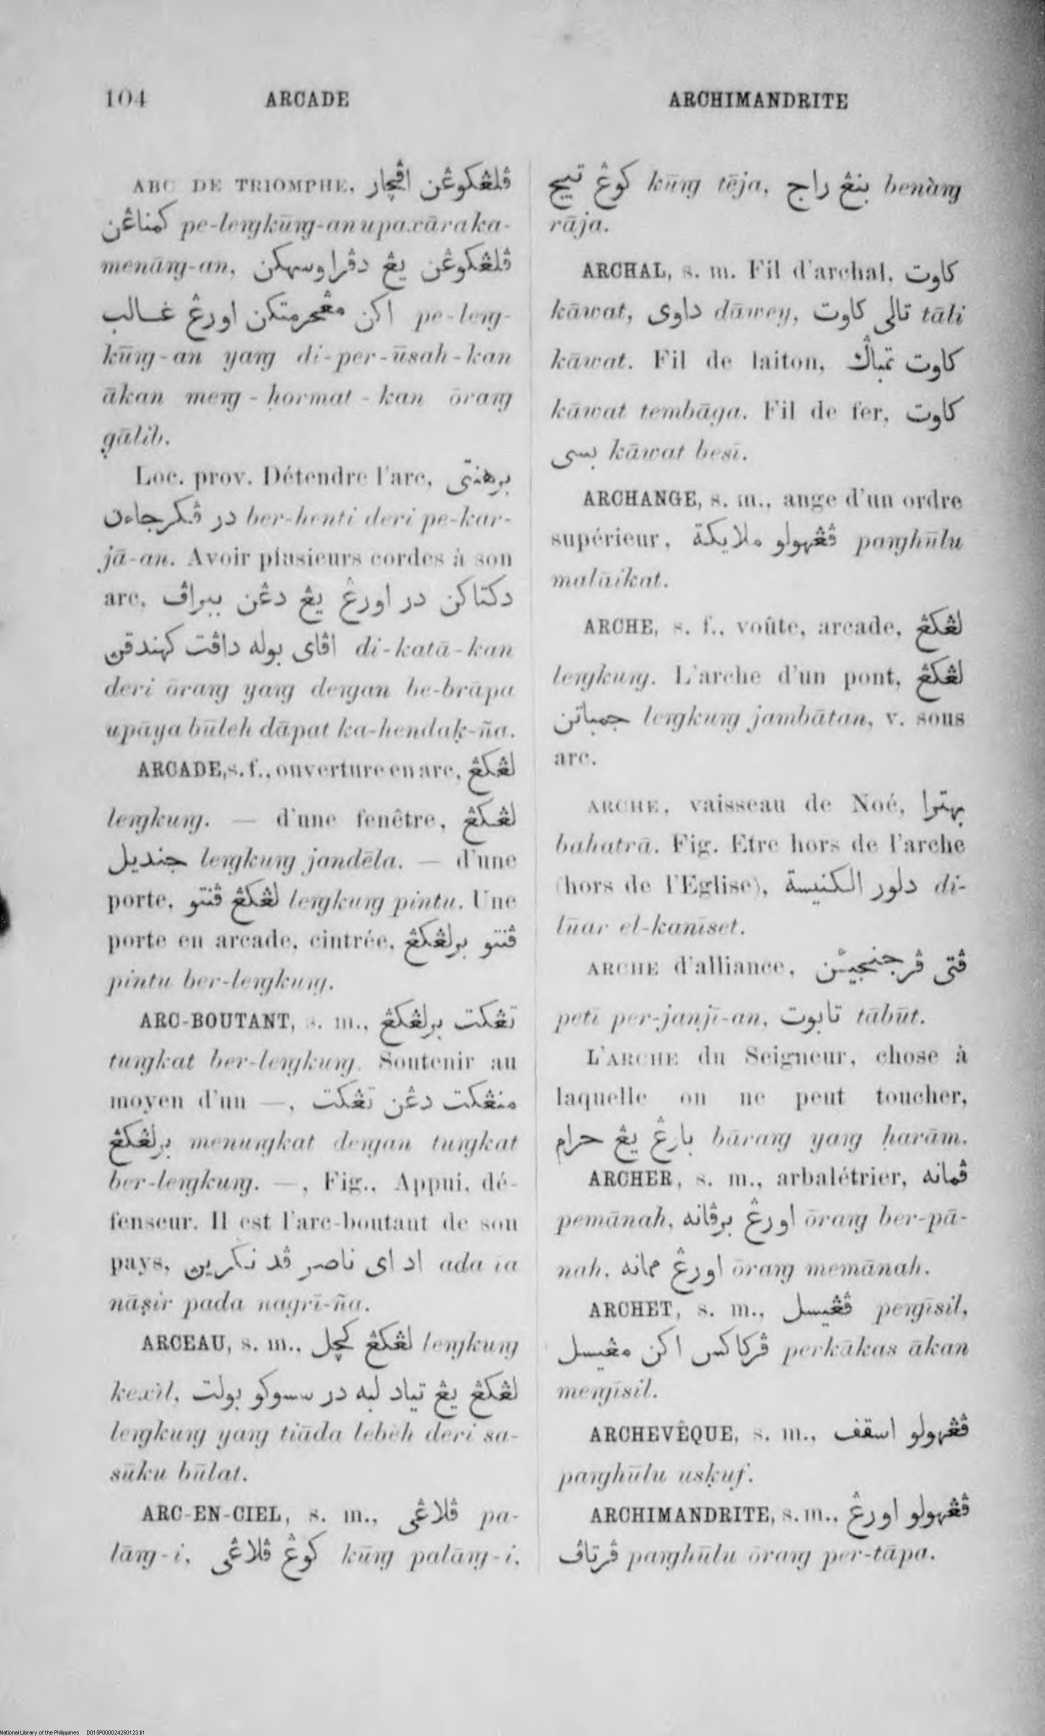 104 ARCADE ARCHIMANDRITE
ARC DE TRIOMPHE, ڤلڠكوڠن اڤچار
كمناڠن pe-lengkūng-an upaxāra ka-
menāng-an, ڤلڠكوڠن يڠ دڤراوسهكن
اكن مڠحرمتكن اورڠ غالب pe-leng-
kūng-an yang di-per-ūsah-kan
ākan meng-ḥormat-kan ōrang
gālib.
Loc. prov. Détendre l'arc, برهنتى
در ڤكرجاءن ber-henti deri pe-kar-
jā-an. Avoir plusieurs cordes à son
arc, دكتاكن در اورڠ يڠ دڠن ببراڤ
اڤاى بوله داڤت كهندقن di-katā-kan
deri ōrang yang dengan be-brāpa
upāya būleh dāpat ka-hendaḳ-ña.
ARCADE, s. f., ouverture en arc, لڠكڠ
lengkung. — d'une fenêtre, لڠكڠ
جنديل lengkung jandēla. — d'une
porte, لڠكڠ ڤنتو lengkung pintu. Une
porte en arcade, cintrée, ڤنتو برلڠكڠ
pintu ber-lengkung.
ARC-BOUTANT, s. m., تڠكت برلڠكڠ
tungkat ber-lengkung. Soutenir au
moyen d'un —, منڠكت دڠن تڠكت
برلڠكڠ menungkat dengan tungkat
ber-lengkung. —, Fig., Appui, dé-
fenseur. Il est l'arc-boutant de son
pays, اد اى ناصر ڤد نكرين ada īa
nāṣir pada nagrī-ña.
ARCEAU, s. m., لڠكڠ كچل lengkung
kexil, لڠكڠ يڠ تياد لبه در سسوكو بولت
lengkung yang tiāda lebèh deri sa-
sūku būlat.
ARC-EN-CIEL, s. m., ڤلاڠى pa-
lāng-i, كوڠ ڤلاڠى kūng palāng-i,
كوڠ تيج kūng tēja, بنڠ راج benàng
rāja.
ARCHAL, s. m. Fil d'archal, كاوت
kāwat, داوى dāwey, تالى كاوت tāli
kāwat. Fil de laiton, كاوت تمباݢ
kāwat tembāga. Fil de fer, كاوت
بسى kāwat besī.
ARCHANGE, s. m., ange d'un ordre
supérieur, ڤڠهولو ملايكة panghūlu
malāikat.
ARCHE, s. f., voûte, arcade, لڠكڠ
lengkung. L'arche d'un pont, لڠكڠ
جمباتن lengkung jambātan, v. sous
arc.
ARCHE, vaisseau de Noé, بهترا
bahatrā. Fig. Etre hors de l'arche
(hors de l'Eglise), دلور الكنيسة di-
lūar el-kanīset.
ARCHE d'alliance, ڤتى ڤرجنجيئن
petī per-janjī-an, تابوت tābūt.
L'ARCHE du Seigneur, chose à
laquelle on ne peut toucher,
بارڠ يڠ حرام bārang yang ḥarām.
ARCHER, s. m., arbalétrier, ڤمانه
pemānah, اورڠ برڤانه ōrang ber-pā-
nah, اورڠ ممانه ōrang memānah.
ARCHET, s. m., ڤڠيسل pengīsil,
ڤركاكس اكن مڠيسل perkākas ākan
mengīsil.
ARCHEVÊQUE, s. m., ڤڠهولو اسقف
panghūlu usḳuf.
ARCHIMANDRITE, s. m., ڤڠهولو اورڠ
ڤرتاڤ panghūlu ōrang per-tāpa.
National Library of the Philippines